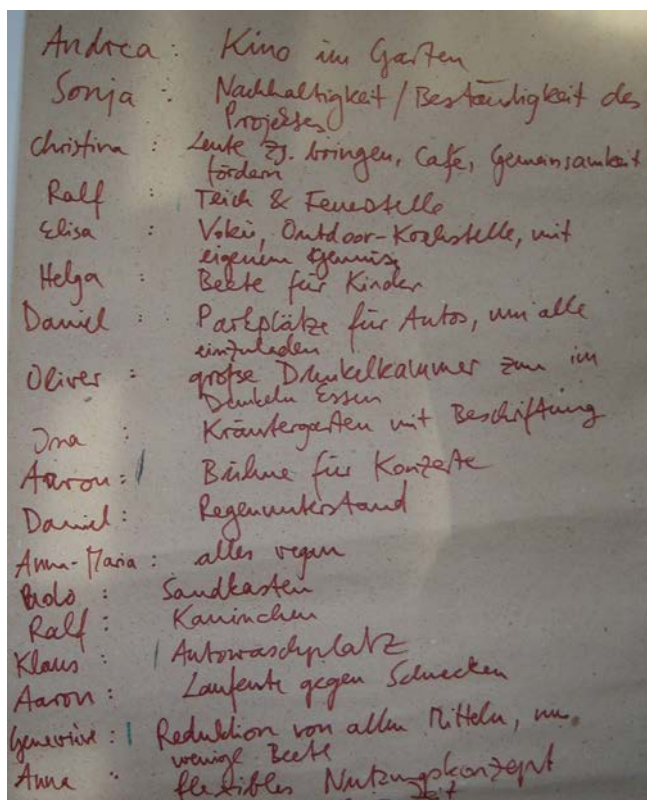 Andrea : Kino im Garten
Sonja : Nachhaltigkeit / Beständigkeit des
Projektes
Christina : Leute zs. bringen, Café, Gemeinsamkeit
fördern
Ralf : Teich & Feuerstelle
Elisa : Vokü, Outdoor-Kochstelle, mit
eigenem Gemüse
Helga : Beete für Kinder
Daniel : Parkplätze für Autos, um alle
einzuladen
Oliver : große Dunkelkammer zum im
Dunkeln Essen
Ina : Kräutergarten mit Beschriftung
Aaron : Bühne für Konzerte
Daniel : Regenunterstand
Anna-Maria : alles vegan
: Sandkasten
Ralf : Kaninchen
Klaus : Autowaschplatz
Aaron : Laufente gegen Schnecken
: Reduktion von allen Mitteln, nur
wenige Beete
Anna " flexibles Nutzungskonzept